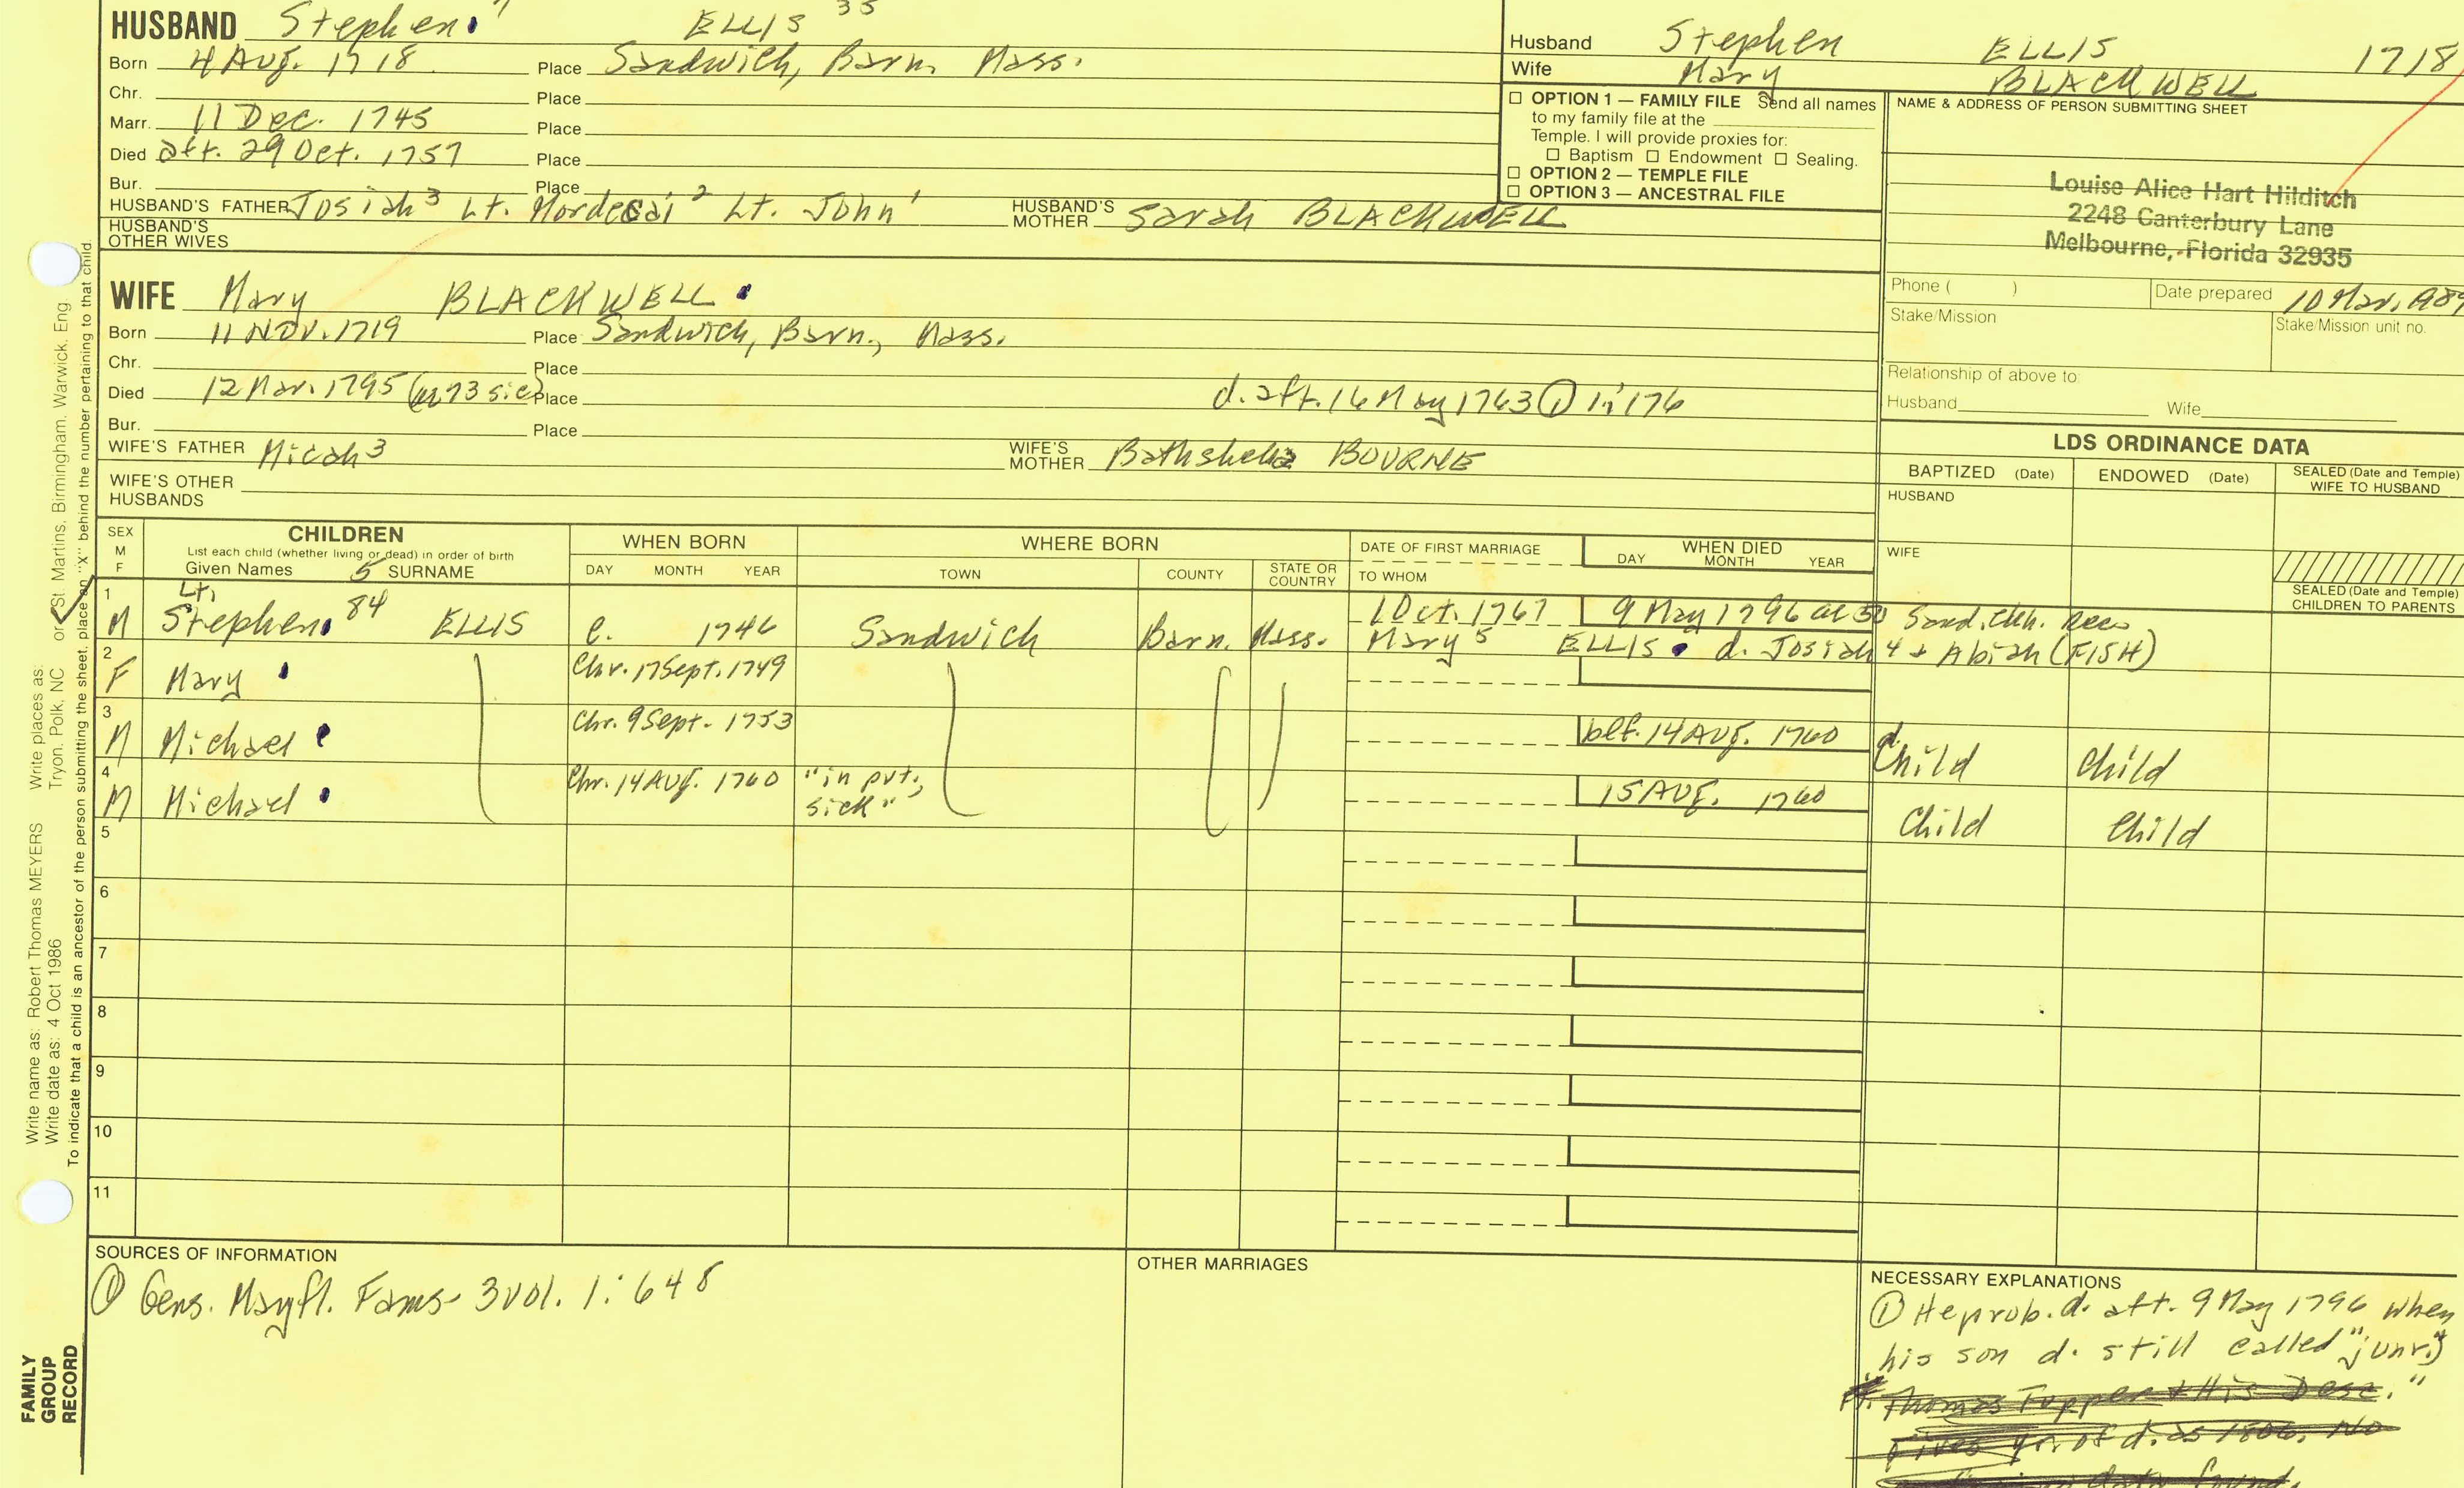 HUSBAND Stephen ELLIS 35
Born 4 Aug. 1718 Place Sandwich, Barn. Mass.
Chr. Place
Marr. 11 Dec. 1745 Place
Died aft. 29 Oct. 1757 Place
Bur. Place
HUSBAND'S FATHER Josiah 3 Lt. Mordecai 2 Lt. John 1 HUSBAND'S MOTHER Sarah BLACKWELL
HUSBAND'S OTHER WIVES
Husband Stephen ELLIS 1718
Wife Mary BLACKWELL
☐ OPTION 1 — FAMILY FILE Send all names
to my family file at the
Temple. I will provide proxies for:
☐ Baptism ☐ Endowment ☐ Sealing.
☐ OPTION 2 — TEMPLE FILE
☐ OPTION 3 — ANCESTRAL FILE
NAME & ADDRESS OF PERSON SUBMITTING SHEET
Louise Alice Hart Hilditch
2248 Canterbury Lane
Melbourne, Florida 32935
Phone ( ) Date prepared 10 Mar. 1989
Stake/Mission Stake/Mission unit no.
Relationship of above to:
Husband Wife
WIFE Mary BLACKWELL
Born 11 Nov. 1719 Place Sandwich, Barn., Mass.
Chr. Place
Died 12 Mar. 1795 (ae 73 sic) Place d. aft. 16 May 1763 ① 1:176
Bur. Place
WIFE'S FATHER Micah 3 WIFE'S MOTHER Bathsheba BOURNE
WIFE'S OTHER HUSBANDS
LDS ORDINANCE DATA
BAPTIZED (Date) ENDOWED (Date) SEALED (Date and Temple) WIFE TO HUSBAND
HUSBAND
WIFE
SEALED (Date and Temple) CHILDREN TO PARENTS
SEX M F CHILDREN WHEN BORN WHERE BORN DATE OF FIRST MARRIAGE WHEN DIED
List each child (whether living or dead) in order of birth
Given Names 5 SURNAME DAY MONTH YEAR TOWN COUNTY STATE OR COUNTRY TO WHOM DAY MONTH YEAR
1 M Lt. Stephen 84 ELLIS c. 1746 Sandwich Barn. Mass. 1 Oct. 1767 9 May 1796 ae 50 Sand. Chh. Recs
Mary 5 ELLIS d. Josiah 4 + Abiah (FISH)
2 F Mary Chr. 17 Sept. 1749
3 M Michael Chr. 9 Sept. 1753 bef. 14 Aug. 1760 d. Child Child
4 M Michael Chr. 14 Aug. 1760 "in pvt., sick" 15 Aug. 1760 Child Child
5
6
7
8
9
10
11
SOURCES OF INFORMATION
① Gens. Mayfl. Fams- 3 vol. 1:648
OTHER MARRIAGES
NECESSARY EXPLANATIONS
① He prob. d. aft. 9 May 1796 when
his son d. still called "junr."
Thomas Tupper & His Desc."
Gives yr. of d. as 1806. No
data found.
Write name as: Robert Thomas MEYERS Write places as: Tryon, Polk, NC or St. Martins, Birmingham, Warwick, Eng
Write date as: 4 Oct 1986
To indicate that a child is an ancestor of the person submitting the sheet, place an "X" behind the number pertaining to that child.
FAMILY
GROUP
RECORD